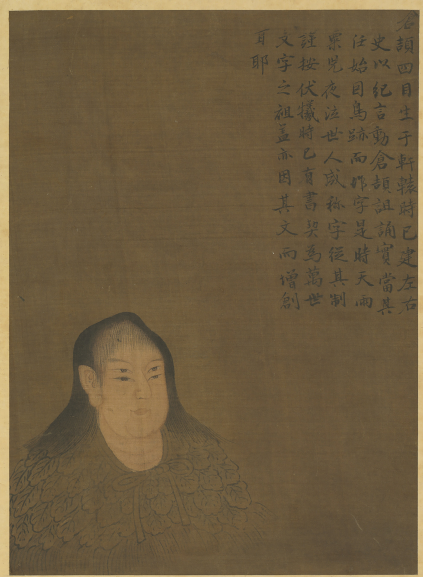 頡四目生于軒轅時已建左右
史以紀言動倉頡詛誦實當其
任始因鳥跡而作字是時天雨
粟鬼夜泣世人咸稱字從其制
謹按伏犧時已有書契為萬世
文字之祖蓋亦因其文而增創
耳耶